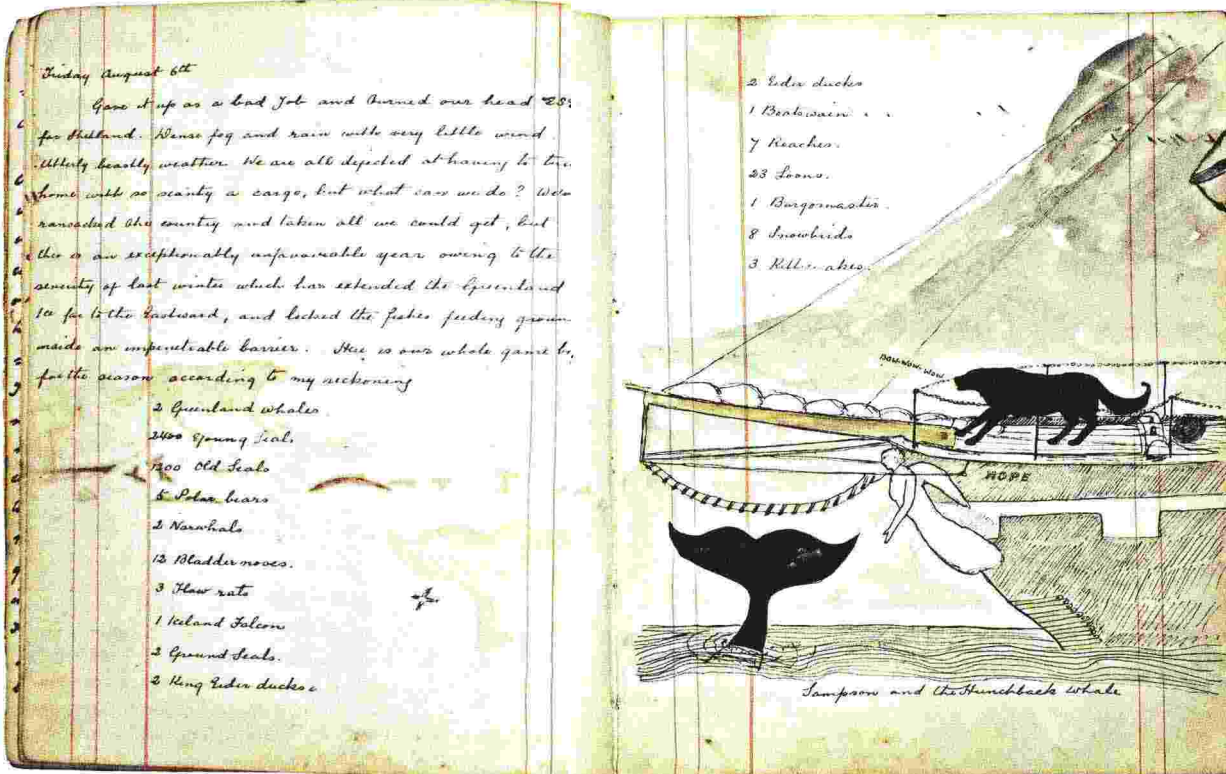 Friday August 6th
Gave it up as a bad Job and turned our head ESE
for Shetland. Dense fog and rain with very little wind.
Utterly beastly weather. We are all dejected at having to
home with so scanty a cargo, but what can we do?
ransacked the country and taken all we could get, but
this is an exceptionably unfavourable year owing to the
severity of last winter which has extended the Greenland
Ice far to the Eastward, and locked the fishes feeding groun
inside an impenetrable barrier. Here is our whole game
for the season according to my reckoning
2 Greenland whales
2400 Young Seals
1200 Old Seals
5 Polar bears
2 Narwhals
12 Bladdernoses.
3 Flaw rats
1 Iceland Falcon
2 Ground Seals.
2 King Eider ducks.
2 Eider ducks
1 Boatswain
7 Roaches.
23 Loons.
1 Burgomaster
8 Snowbirds
3 Kittiwakes.
BOW-WOW-WOW
HOPE
Sampson and the Hunchback Whale